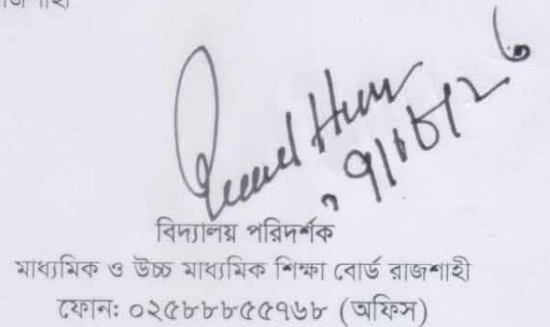 বিদ্যালয় পরিদর্শক
মাধ্যমিক ও উচ্চ মাধ্যমিক শিক্ষা বোর্ড রাজশাহী
ফোন: ০২৫৮৮৮৫৫৭৬৮ (অফিস)